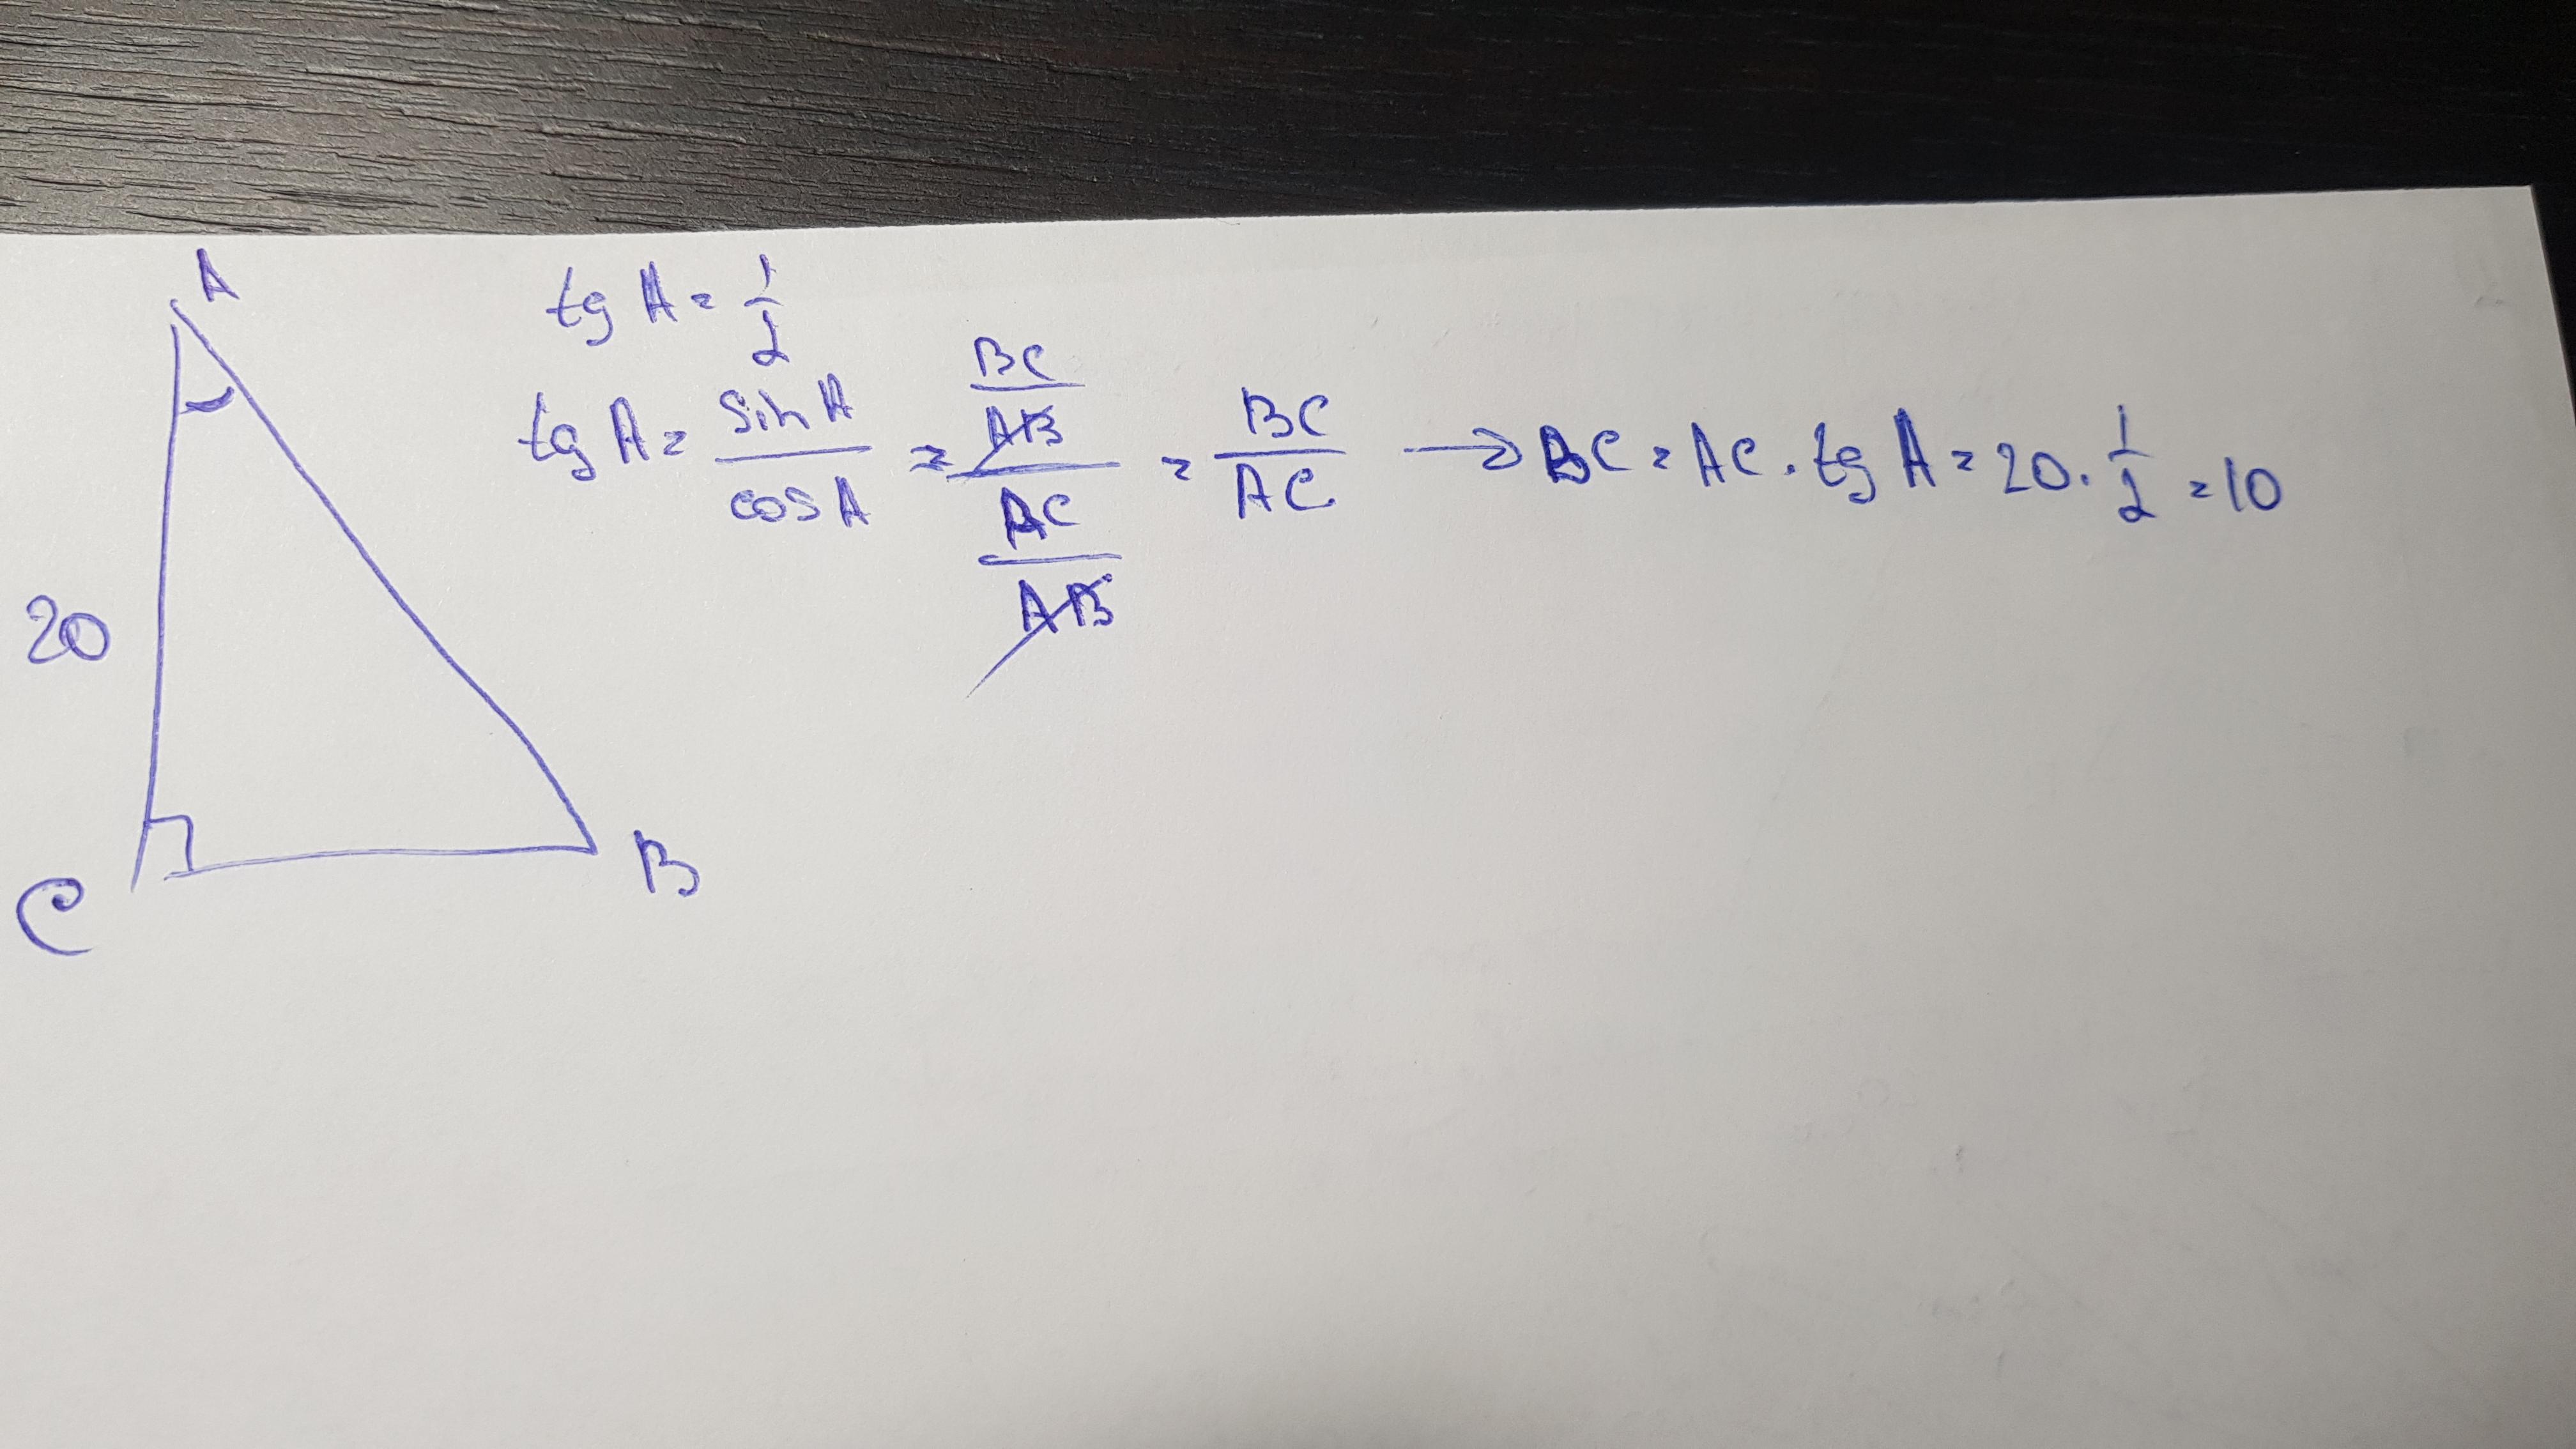 A
tg A = 1/2
tg A = sin A / cos A = (BC / AB) / (AC / AB) = BC / AC → BC = AC · tg A = 20 · 1/2 = 10
20
C
B